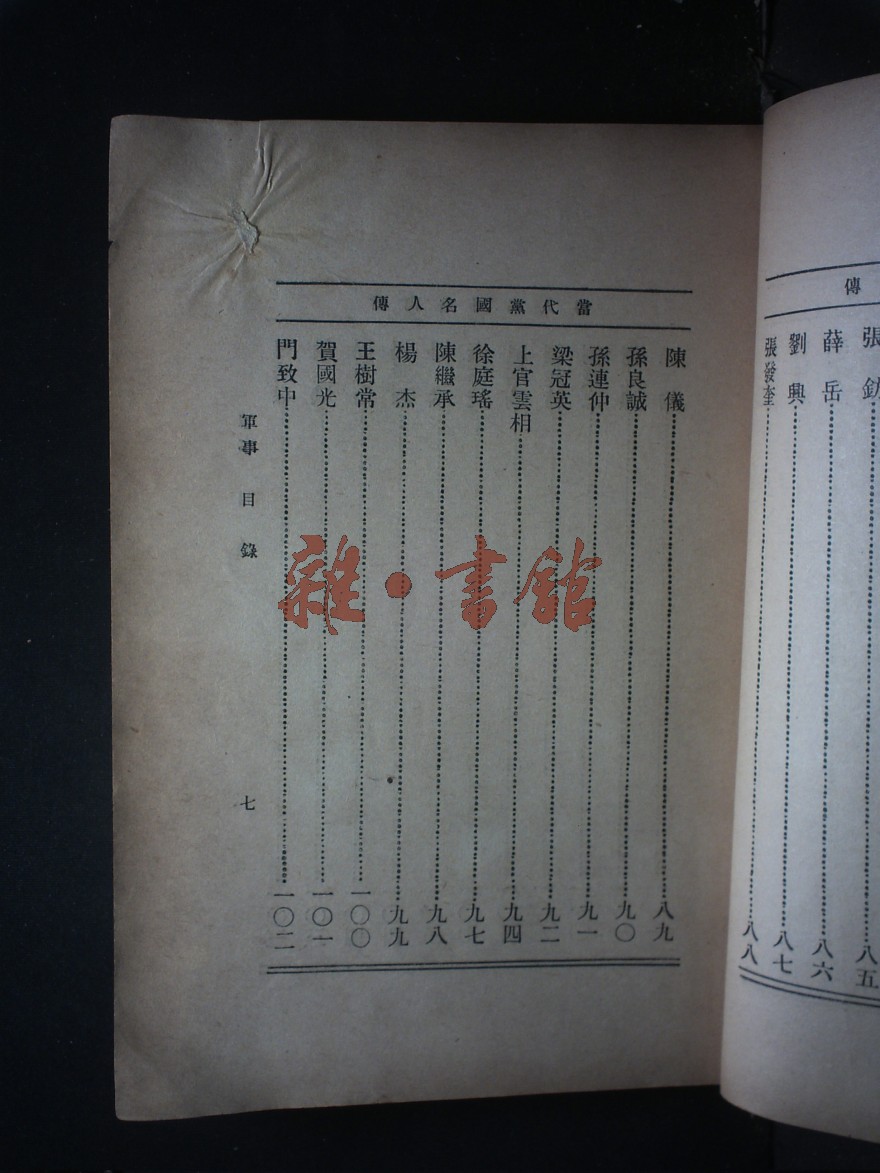 傳
張鈁……八五
薛岳……八六
劉興……八七
張發奎……八八
當代黨國名人傳
陳儀……八九
孫良誠……九〇
孫連仲……九一
梁冠英……九二
上官雲相……九四
徐庭瑤……九七
陳繼承……九八
楊杰……九九
王樹常……一〇〇
賀國光……一〇一
門致中……一〇二
軍事 目錄
七
雜·書館